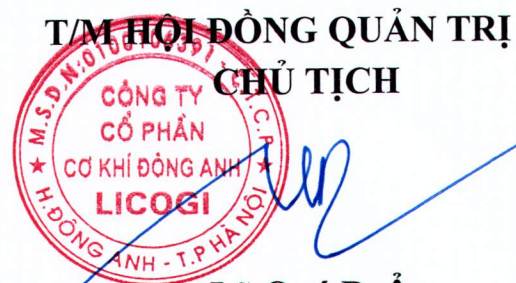 T/M HỘI ĐỒNG QUẢN TRỊ
CHỦ TỊCH
CÔNG TY
CỔ PHẦN
CƠ KHÍ ĐÔNG ANH
LICOGI
H.ĐÔNG ANH - T.P HÀ NỘI